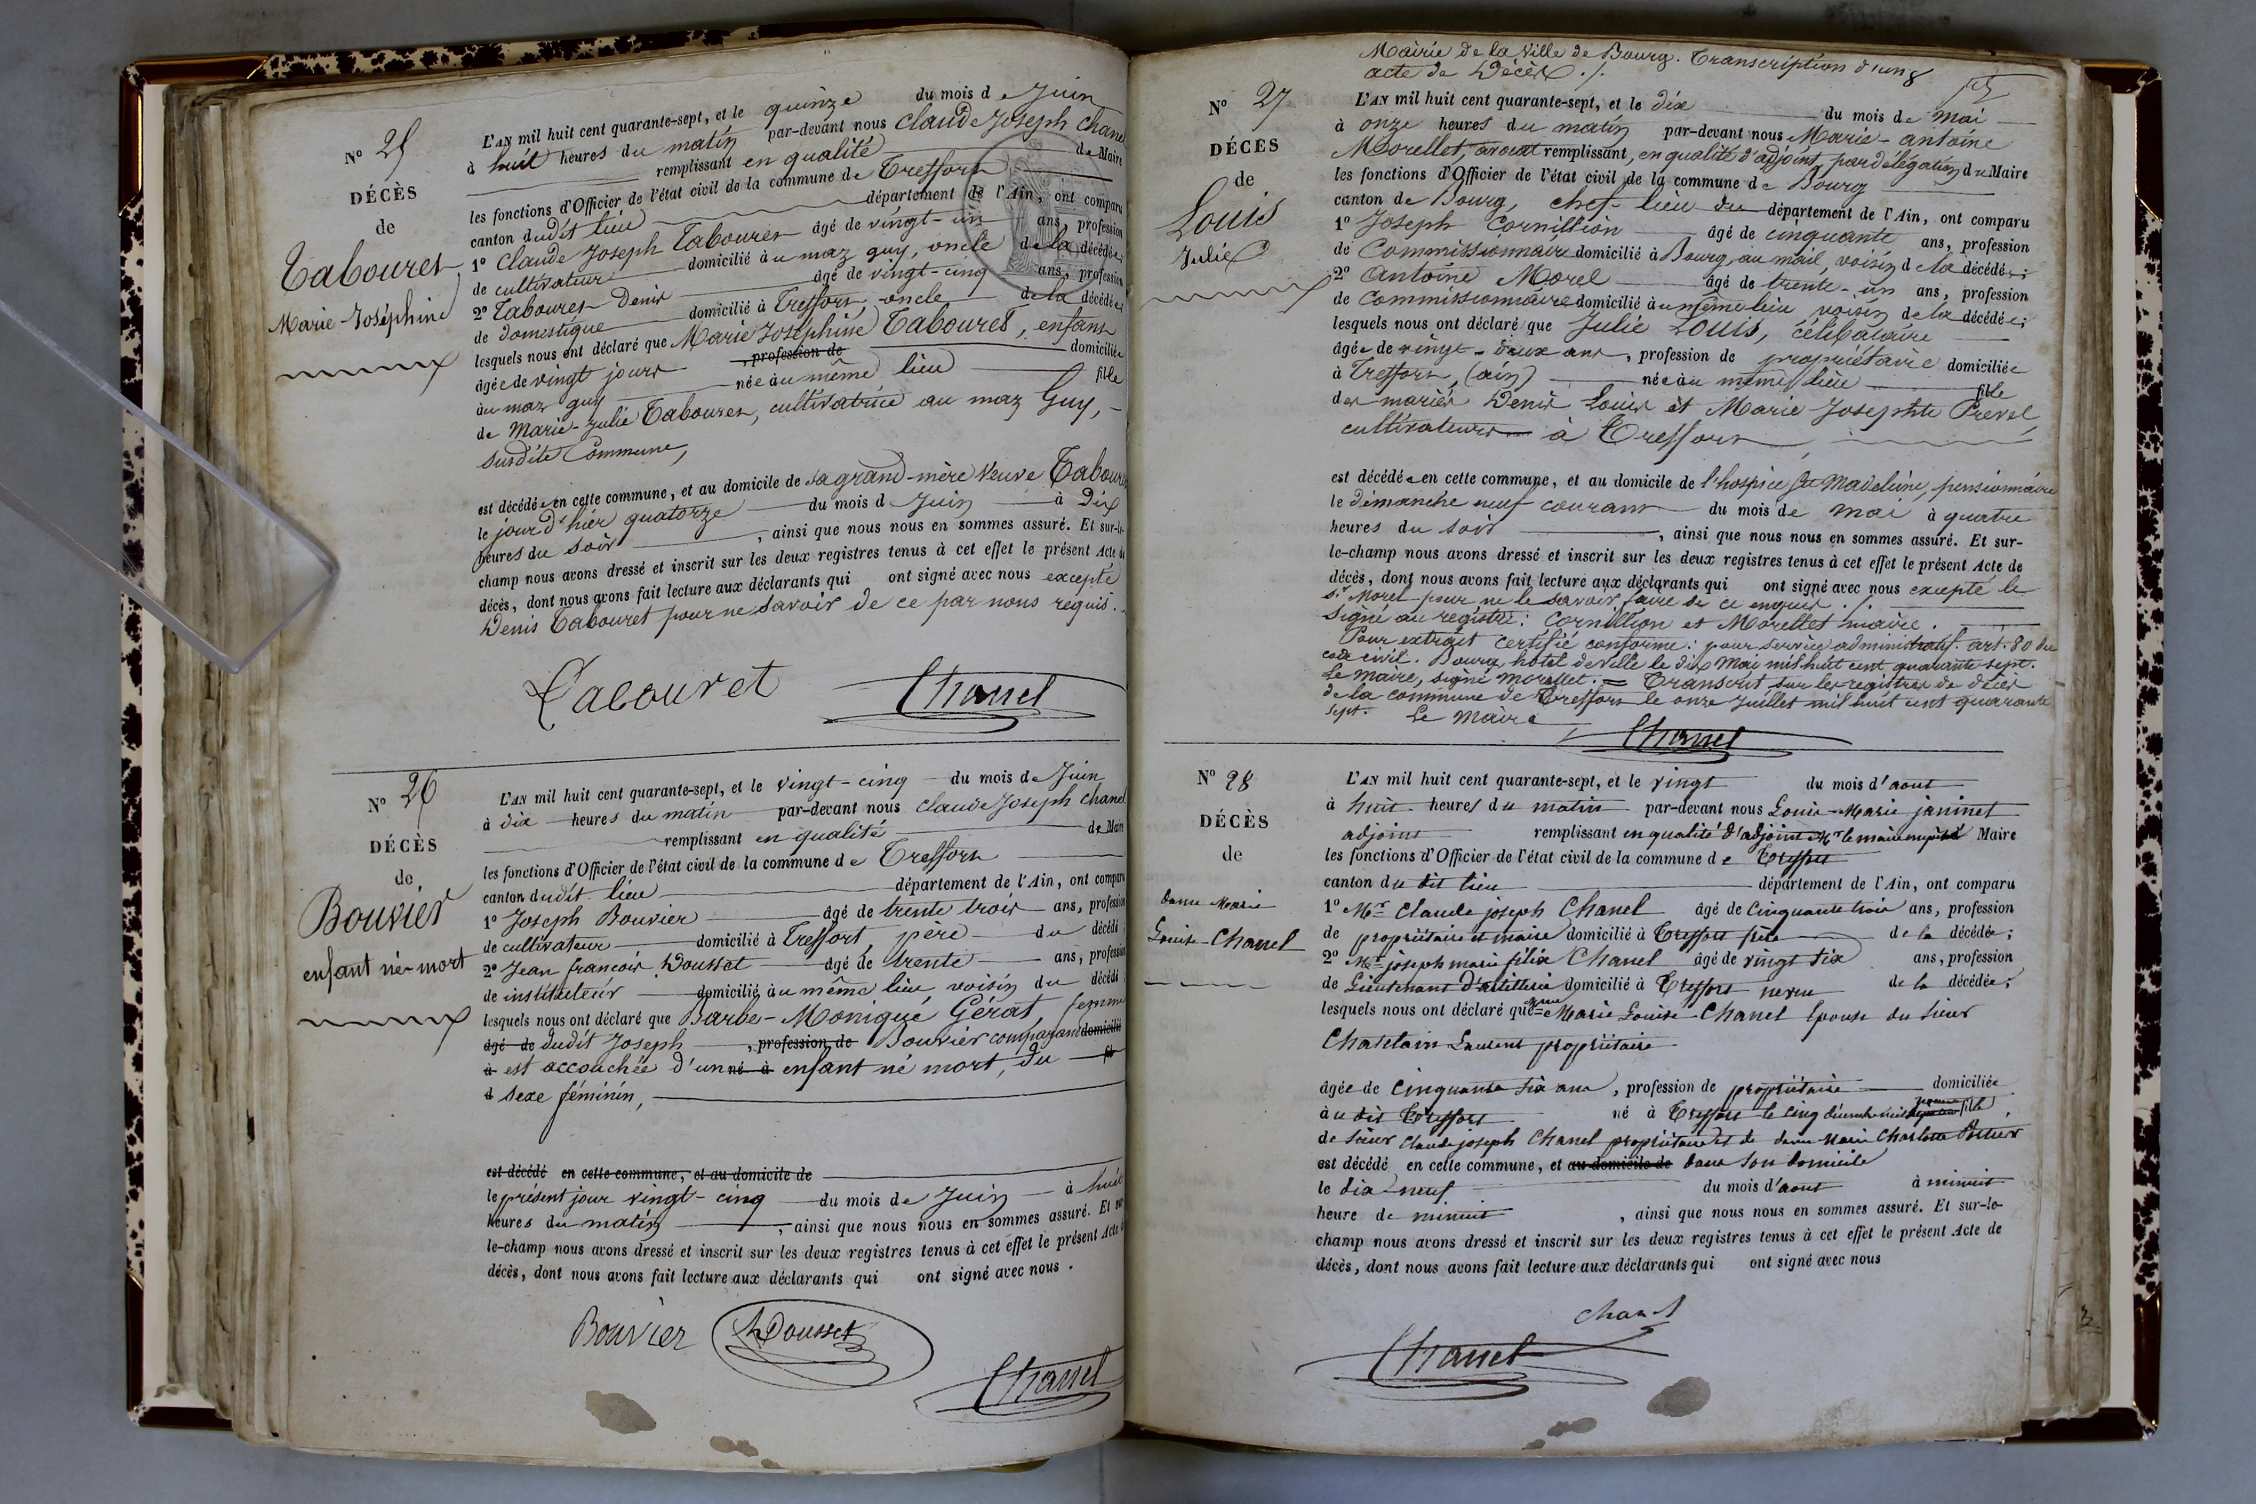 N° 25
DÉCÈS
de
Tabouret
Marie-Joséphine
L'AN mil huit cent quarante-sept, et le quinze du mois de Juin
à huit heures du matin par-devant nous Claude Joseph Chanel
remplissant en qualité de Maire
les fonctions d'Officier de l'état civil de la commune de Treffort
canton dudit lieu département de l'Ain, ont comparu
1° Claude Joseph Tabouret âgé de vingt-un ans, profession
de cultivateur domicilié au maz guy, oncle de la décédée;
2° Tabouret Denis âgé de vingt-cinq ans, profession
de domestique domicilié à Treffort, oncle de la décédée;
lesquels nous ont déclaré que Marie Joséphine Tabouret, enfant
âgée de vingt jours , profession de domiciliée
au maz guy née au même lieu fille
de Marie-Julie Tabouret, cultivatrice au maz Guy,
susdite Commune,
est décédée en cette commune, et au domicile de sa grand-mère Veuve Tabouret
le jour d'hier quatorze du mois de Juin à Dix
heures du soir , ainsi que nous nous en sommes assuré. Et sur-le-
champ nous avons dressé et inscrit sur les deux registres tenus à cet effet le présent Acte de
décès, dont nous avons fait lecture aux déclarants qui ont signé avec nous excepté
Denis Tabouret pour ne savoir de ce par nous requis.
Tabouret Chanel
N° 26
DÉCÈS
de
Bouvier
enfant né-mort
L'AN mil huit cent quarante-sept, et le vingt-cinq du mois de Juin
à dix heures du matin par-devant nous Claude Joseph Chanel
remplissant en qualité de Maire
les fonctions d'Officier de l'état civil de la commune de Treffort
canton dudit lieu département de l'Ain, ont comparu
1° Joseph Bouvier âgé de trente trois ans, profession
de cultivateur domicilié à Treffort, père du décédé;
2° Jean françois Dousset âgé de trente ans, profession
de instituteur domicilié au même lieu, voisin du décédé;
lesquels nous ont déclaré que Barbe-Monique Gérat, femme
âgé de dudit Joseph , profession de Bouvier comparant domicilié
à est accouchée d'un né à enfant né mort, du fil
d sexe féminin,
est décédé en cette commune, et au domicile de
le présent jour vingt-cinq du mois de Juin à huit
heures du matin , ainsi que nous nous en sommes assuré. Et sur-
le-champ nous avons dressé et inscrit sur les deux registres tenus à cet effet le présent Acte de
décès, dont nous avons fait lecture aux déclarants qui ont signé avec nous.
Bouvier Dousset
Chanel
Mairie de la Ville de Bourg. Transcription d'un
acte de Décès ./.
N° 27
DÉCÈS
de
Louis
Julie
L'AN mil huit cent quarante-sept, et le dix du mois de Mai
à onze heures du matin par-devant nous Marie-antoine
Morellet, avocat remplissant, en qualité d'adjoint, par délégation du Maire
les fonctions d'Officier de l'état civil de la commune de Bourg
canton de Bourg, chef-lieu du département de l'Ain, ont comparu
1° Joseph Cornillion âgé de cinquante ans, profession
de Commissionnaire domicilié à Bourg, au mail, voisin de la décédée;
2° Antoine Morel âgé de trente-un ans, profession
de Commissionnaire domicilié au même lieu, voisin de la décédée;
lesquels nous ont déclaré que Julie Louis, célibataire
âgée de vingt-deux ans, profession de propriétaire domiciliée
à Treffort, (ain) née au même lieu fille
des mariés Denis Louis et Marie Josephte Prevel,
cultivateurs à Treffort
est décédée en cette commune, et au domicile de l'hospice Ste Madeleine, pensionnaire
le dimanche neuf courant du mois de mai à quatre
heures du soir , ainsi que nous nous en sommes assuré. Et sur-
le-champ nous avons dressé et inscrit sur les deux registres tenus à cet effet le présent Acte de
décès, dont nous avons fait lecture aux déclarants qui ont signé avec nous excepté le
Sr Morel pour ne le savoir faire de ce enquis ./.
Signé au registre: Cornillion et Morellet maire.
Pour extrait certifié conforme: pour service administratif. art. 80 du
code civil. Bourg, hôtel de ville le dix Mai mil huit cent quarante sept.
Le maire, signé Morellet. = Transcrit sur les registres de décès
de la commune de Treffort le onze Juillet mil huit cent quarante
sept. Le Maire
Chanel
N° 28
DÉCÈS
de
dame Marie
Louise Chanel
L'AN mil huit cent quarante-sept, et le vingt du mois d'aout
à huit heures du matin par-devant nous Louis-Marie janinet
adjoint remplissant en qualité d'adjoint Mr le maire empêché Maire
les fonctions d'Officier de l'état civil de la commune de Treffort
canton du dit lieu département de l'Ain, ont comparu
1° Mr Claude joseph Chanel âgé de Cinquante trois ans, profession
de propriétaire et maire domicilié à Treffort frère de la décédée;
2° Mr joseph marie félix Chanel âgé de vingt six ans, profession
de Lieutenant d'artillerie domicilié à Treffort neveu de la décédée;
lesquels nous ont déclaré que dame Marie Louise Chanel Epouse du sieur
Chatelain Laurent propriétaire
âgée de Cinquante six ans, profession de propriétaire domiciliée
au dit Treffort né à Treffort le cinq décembre fille
de sieur Claude joseph Chanel propriétaire et de dame Marie Charlotte
est décédé en cette commune, et au domicile de dans son domicile
le dix-neuf du mois d'aout à minuit
heure de minuit , ainsi que nous nous en sommes assuré. Et sur-le-
champ nous avons dressé et inscrit sur les deux registres tenus à cet effet le présent Acte de
décès, dont nous avons fait lecture aux déclarants qui ont signé avec nous
Chanel
Chanel